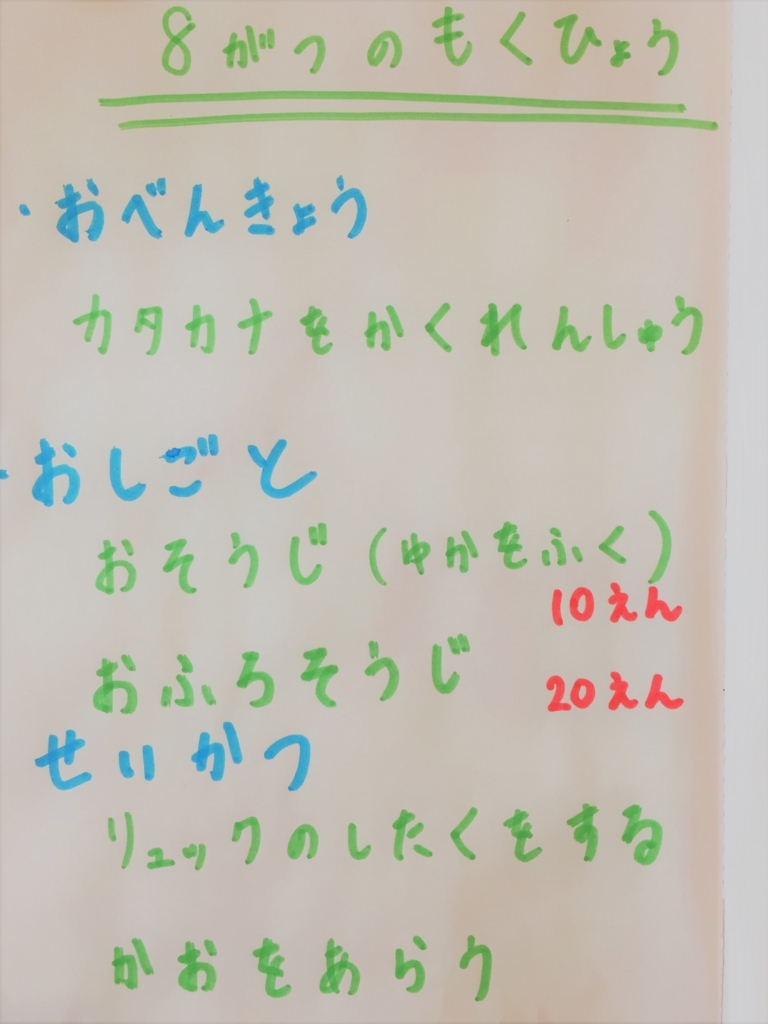 8がつのもくひょう
・おべんきょう
カタカナをかくれんしゅう
・おしごと
おそうじ(ゆかをふく)
10えん
おふろそうじ 20えん
せいかつ
リュックのしたくをする
かおをあらう